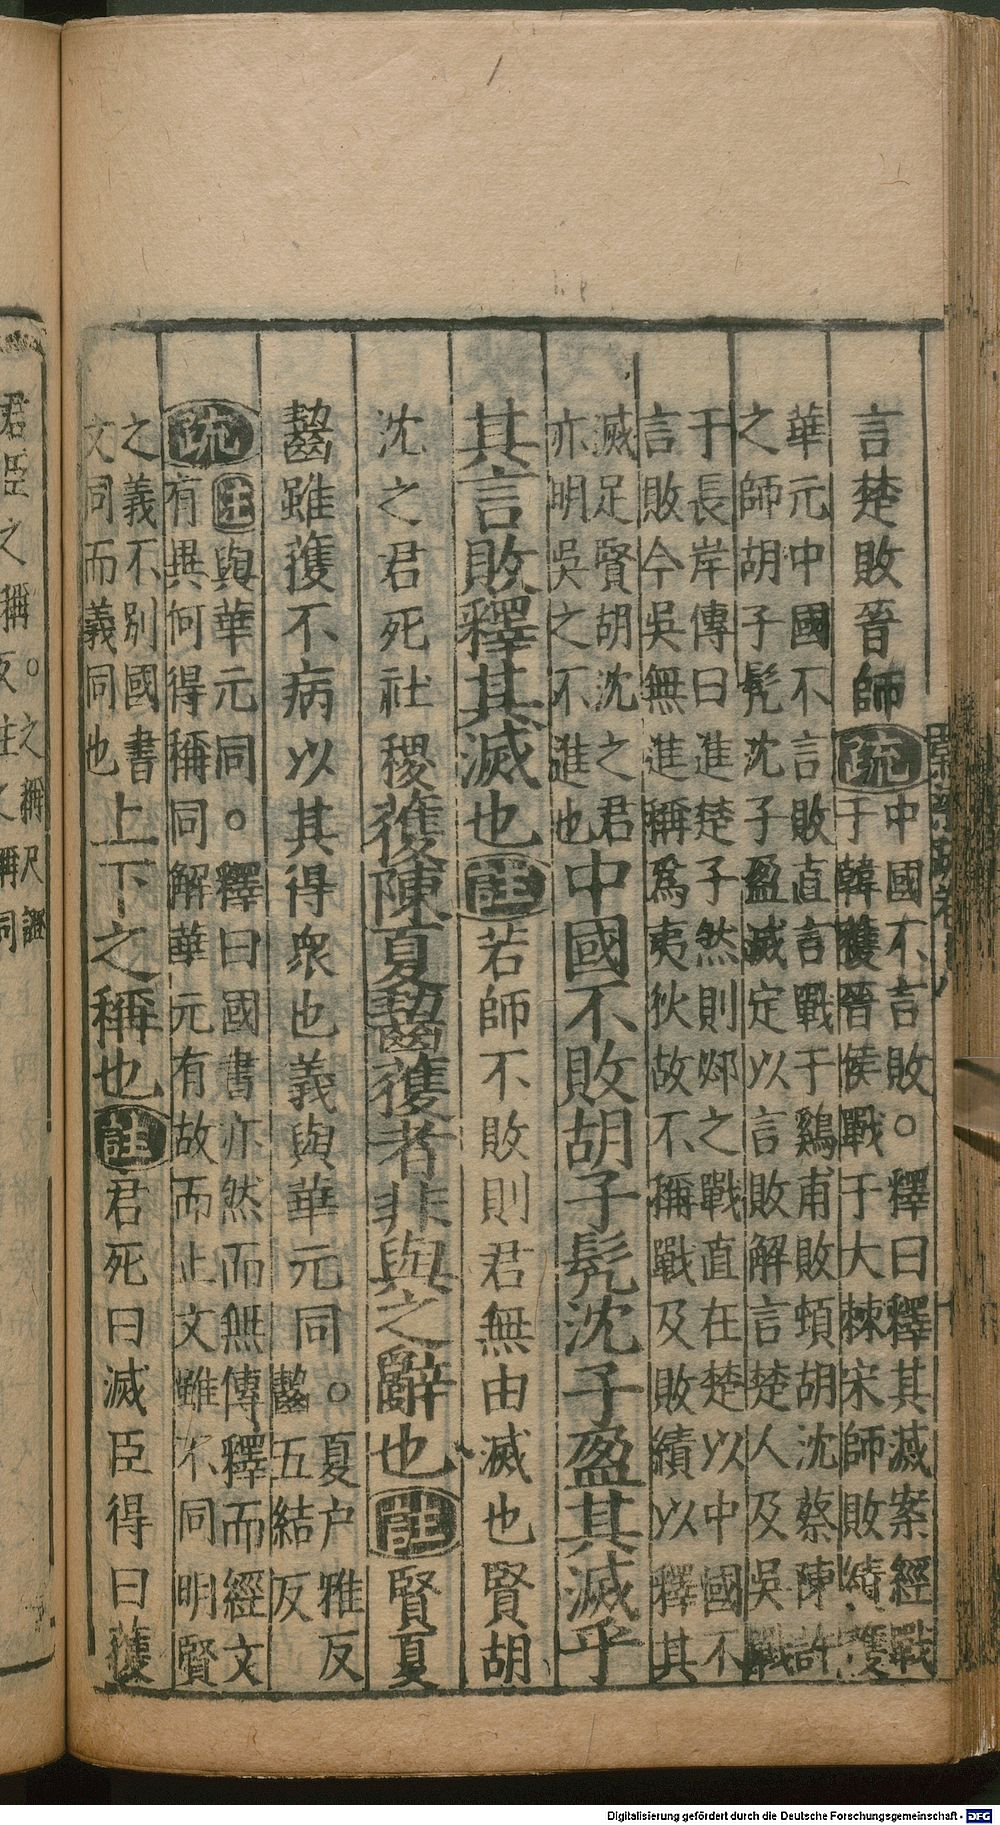 言楚敗晉師疏中國不言敗。釋曰釋其滅案經戰
于韓獲晉侯戰于大棘宋師敗績獲
華元中國不言敗直言戰于鷄甫敗頓胡沈蔡陳許
之師胡子髠沈子盈滅定以言敗解言楚人及吳戰
于長岸傳曰進楚子然則邲之戰直在楚以中國不
言敗今吳無進稱爲夷狄故不稱戰及敗績以釋其
滅足賢胡沈之君
亦明吳之不進也中國不敗胡子髠沈子盈其滅乎
其言敗釋其滅也註若師不敗則君無由滅也賢胡
沈之君死社稷獲陳夏齧獲者非與之辭也註賢夏
齧雖獲不病以其得衆也義與華元同。夏户雅反
齧五結反
疏注與華元同。釋曰國書亦然而無傳釋而經文
有異何得稱同解華元有故而止文雖不同明賢
之義不別國書
文同而義同也上下之稱也註君死曰滅臣得曰獲
君臣之稱
。之稱尺證
反注稱同
Digitalisierung gefördert durch die Deutsche Forschungsgemeinschaft - DFG